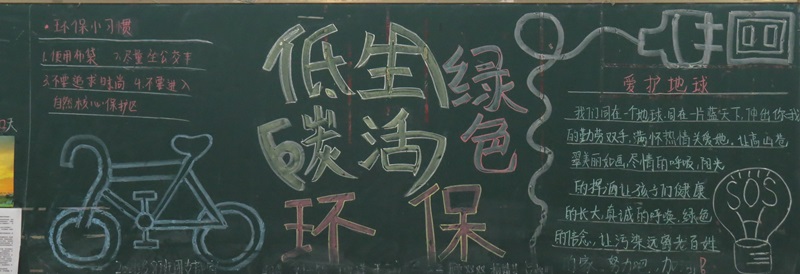 环保小习惯
1.使用布袋 2.尽量坐公交车
3.不要追求时尚 4.不要进入
自然核心保护区
低碳生活
绿色
环保
爱护地球
我们同在一个地球,同在一片蓝天下,伸出你我
的勤劳双手,满怀热情关爱地,让高山苍
翠美丽如画,尽情的呼吸,阳光
的挥洒让孩子们健康
的长大,真诚的呼唤,绿色
的信念,让污染远离老百姓
努力
SOS
天